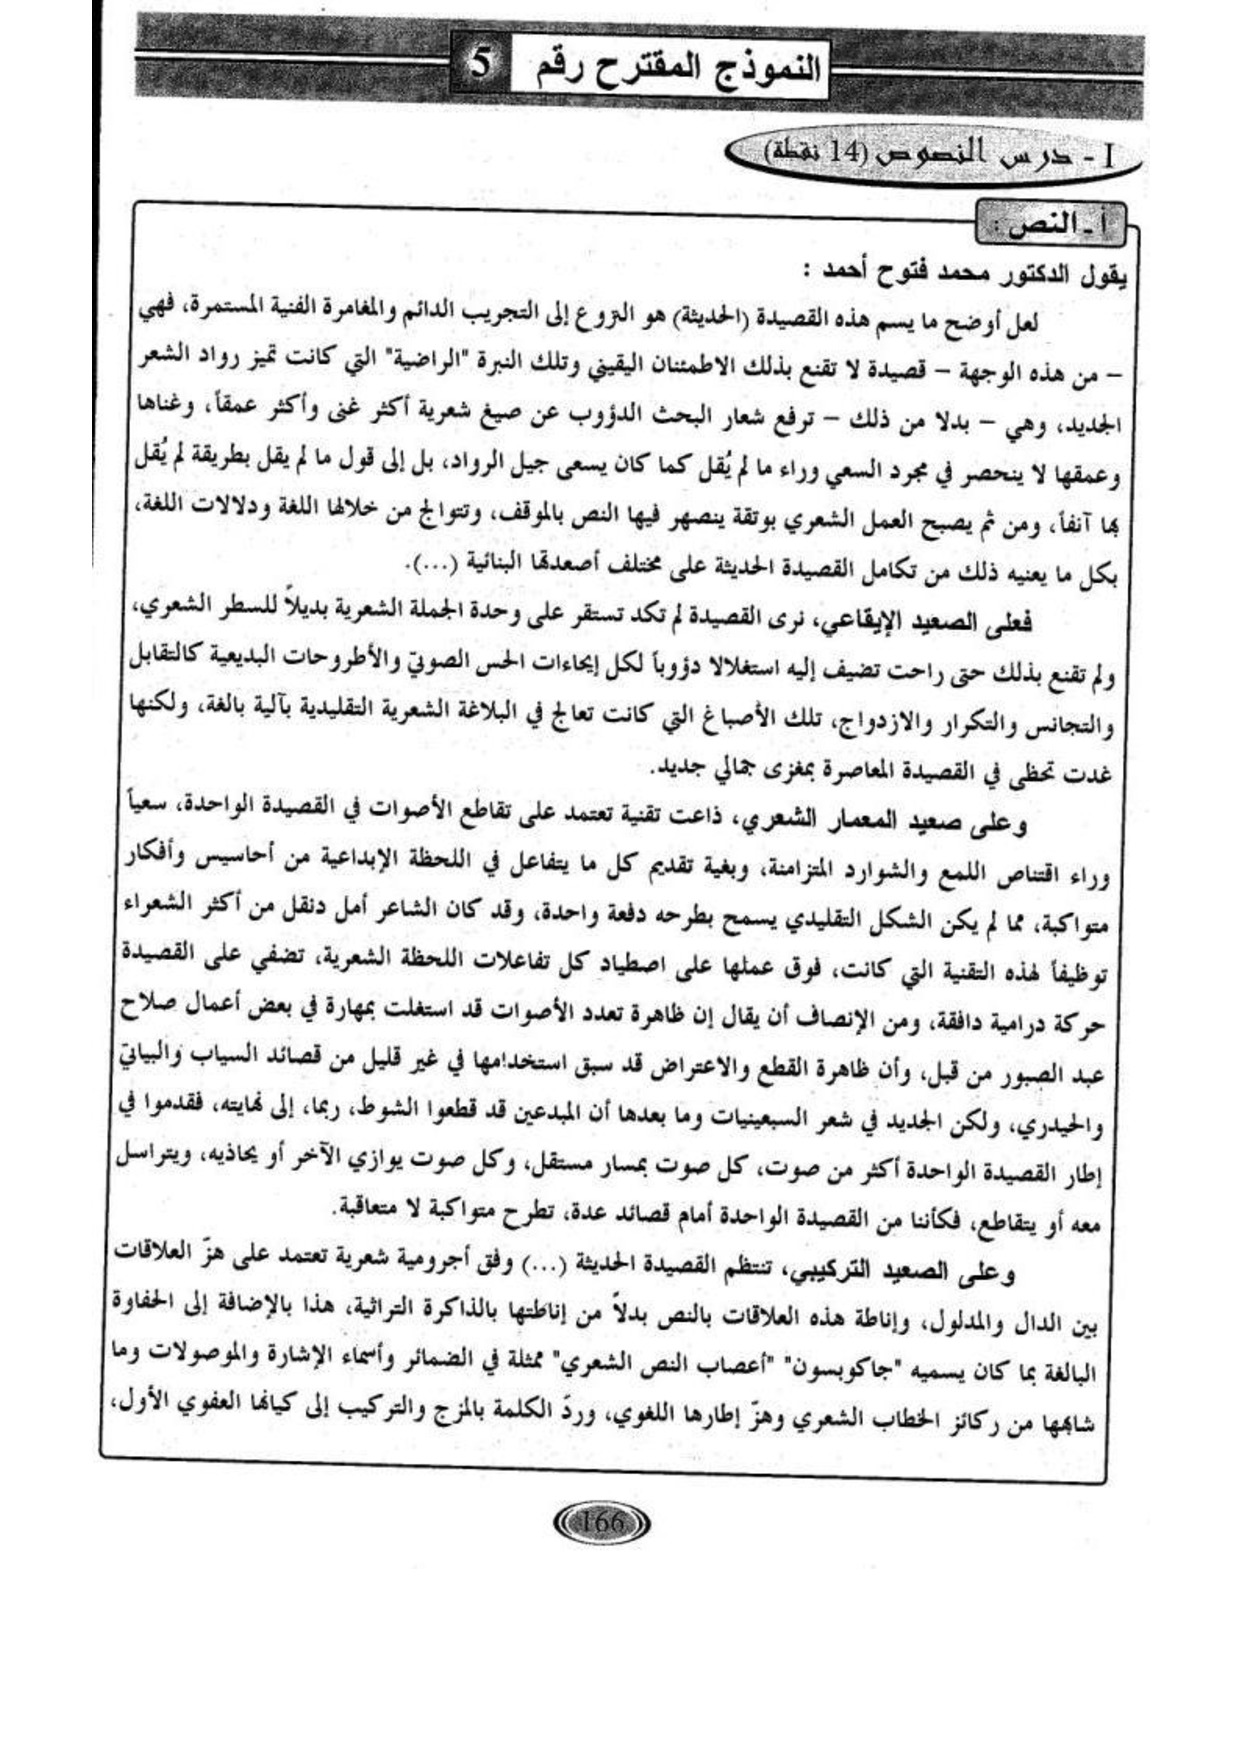 النموذج المقترح رقم 5
I - درس النصوص (14 نقطة)
أ - النص :
يقول الدكتور محمد فتوح أحمد :
لعل أوضح ما يسم هذه القصيدة (الحديثة) هو النزوع إلى التجريب الدائم والمغامرة الفنية المستمرة، فهي
– من هذه الوجهة – قصيدة لا تقنع بذلك الاطمئنان اليقيني وتلك النبرة "الراضية" التي كانت تميز رواد الشعر
الجديد، وهي – بدلا من ذلك – ترفع شعار البحث الدؤوب عن صيغ شعرية أكثر غنى وأكثر عمقاً، وغناها
وعمقها لا ينحصر في مجرد السعي وراء ما لم يُقل كما كان يسعى جيل الرواد، بل إلى قول ما لم يقل بطريقة لم يُقل
بها آنفاً، ومن ثم يصبح العمل الشعري بوتقة ينصهر فيها النص بالموقف، وتتوالج من خلالها اللغة ودلالات اللغة،
بكل ما يعنيه ذلك من تكامل القصيدة الحديثة على مختلف أصعدتها البنائية (...).
فعلى الصعيد الإيقاعي، نرى القصيدة لم تكد تستقر على وحدة الجملة الشعرية بديلاً للسطر الشعري،
ولم تقنع بذلك حتى راحت تضيف إليه استغلالا دؤوباً لكل إيحاءات الحس الصوتي والأطروحات البديعية كالتقابل
والتجانس والتكرار والازدواج، تلك الأصباغ التي كانت تعالج في البلاغة الشعرية التقليدية بآلية بالغة، ولكنها
غدت تحظى في القصيدة المعاصرة بمغزى جمالي جديد.
وعلى صعيد المعمار الشعري، ذاعت تقنية تعتمد على تقاطع الأصوات في القصيدة الواحدة، سعياً
وراء اقتناص اللمع والشوارد المتزامنة، وبغية تقديم كل ما يتفاعل في اللحظة الإبداعية من أحاسيس وأفكار
متواكبة، مما لم يكن الشكل التقليدي يسمح بطرحه دفعة واحدة، وقد كان الشاعر أمل دنقل من أكثر الشعراء
توظيفاً لهذه التقنية التي كانت، فوق عملها على اصطياد كل تفاعلات اللحظة الشعرية، تضفي على القصيدة
حركة درامية دافقة، ومن الإنصاف أن يقال إن ظاهرة تعدد الأصوات قد استغلت بمهارة في بعض أعمال صلاح
عبد الصبور من قبل، وأن ظاهرة القطع والاعتراض قد سبق استخدامها في غير قليل من قصائد السياب والبياتي
والحيدري، ولكن الجديد في شعر السبعينيات وما بعدها أن المبدعين قد قطعوا الشوط، ربما، إلى نهايته، فقدموا في
إطار القصيدة الواحدة أكثر من صوت، كل صوت بمسار مستقل، وكل صوت يوازي الآخر أو يحاذيه، ويتراسل
معه أو يتقاطع، فكأننا من القصيدة الواحدة أمام قصائد عدة، تطرح متواكبة لا متعاقبة.
وعلى الصعيد التركيبي، تنتظم القصيدة الحديثة (...) وفق أجرومية شعرية تعتمد على هزّ العلاقات
بين الدال والمدلول، وإناطة هذه العلاقات بالنص بدلاً من إناطتها بالذاكرة التراثية، هذا بالإضافة إلى الحفاوة
البالغة بما كان يسميه "جاكوبسون" "أعصاب النص الشعري" ممثلة في الضمائر وأسماء الإشارة والموصولات وما
شابهها من ركائز الخطاب الشعري وهزّ إطارها اللغوي، وردّ الكلمة بالمزج والتركيب إلى كيانها العفوي الأول،
166